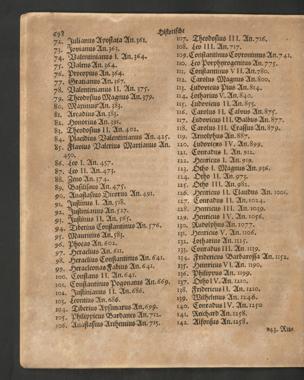 698 Historische
72. Julianus Apostata An. 361.
73. Jovianus An. 363.
74. Valentinianus I. An. 364.
75. Valens An. 364.
76. Procopius An. 364.
77. Gratianus An. 367.
78. Valentinianus II. An. 375.
79. Theodosius Magnus An. 379.
80. Maximus An. 383.
81. Arcadius An. 383.
82. Honorius An. 
83. Theodosius II. An. 402.
84. Placidius Valentinianus An. 425.
85. Flavius Valerius Martianus An.
450.
86. Leo I. An. 457.
87. Leo II. An. 473.
88. Zeno An. 474.
89. Basiliscus An. 475.
90. Anastasius Dicorus An. 491.
91. Justinus I. An. 518.
92. Justinianus An. 527.
93. Justinus II. An. 565.
94. Tiberius Constantinus An. 576.
95. Mauritius An. 583.
96. Phocas An. 602.
97. Heraclius An. 611.
98. Heraclius Constantinus An. 641.
99. Heracleonas Fabius An. 641.
100. Constans II. An. 641.
101. Constantinus Pogonatus An. 669.
102. Justinianus II. An. 686.
103. Leontius An. 686.
104. Tiberius Apsimarus An. 699.
105. Philippicus Bardanes An. 712.
106. Anastasius Arthemius An. 715.
107. Theodosius III. An. 716.
108. Leo III. An. 717.
109. Constantinus Copronimus An. 741.
110. Leo Porphyrogenitus An. 775.
111. Constantinus V An. 780.
112. Carolus Magnus An. 800.
113. Ludovicus Pius An. 814.
114. Lotharius V. An. 840.
115. Ludovicus II. An. 855.
116. Carolus II. Calvus An. 875.
117. Ludovicus III. Balbus An. 877.
118. Carolus III. Crassus An. 879.
119. Arnolphus An. 887.
120. Ludovicus IV. An. 899.
121. Conradus I. An. 912.
122. Henricus I. An. 919.
123. Otho I. Magnus An. 936.
124. Otho II. An. 973.
125. Otho III. An. 983.
126. Henricus II. Claudus An. 1001.
127. Conradus II. An. 1024.
128. Henricus III. An. 1039.
129. Henricus IV. An. 1056.
130. Rudolphus An. 1077.
131. Henricus V. An. 1106.
132. Lotharius An. 1125.
133. Conradus III. An. 1139.
134. Fridericus Barbarossa An. 1152.
135. Henricus VI. An. 1190.
136. Philippus An. 1199.
137. Otho IV. An. 1210.
138. Fridericus II. An. 1210.
139. Wilhelmus An. 1246.
140. Conradus IV. An. 1250
141. Reichard An. 1258.
142. Alfonsus An. 1258.
143. Ru=